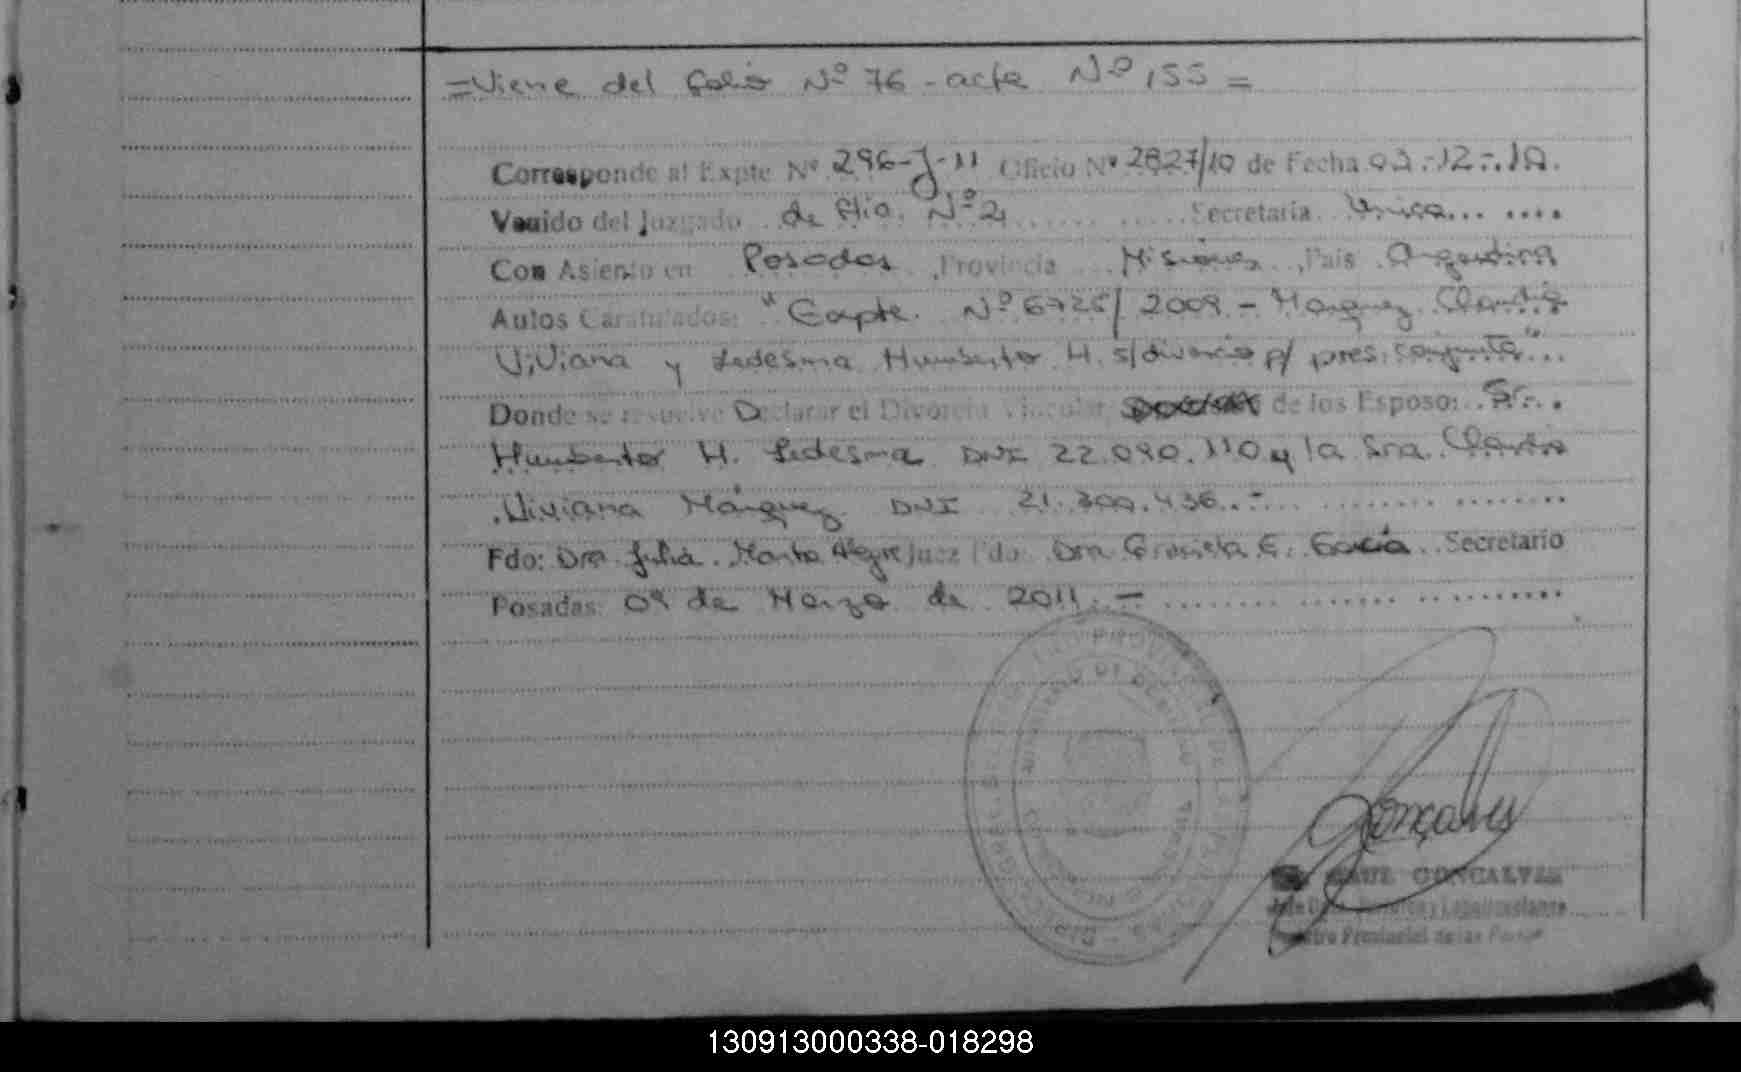 =Viene del folio Nº 76 - acta Nº 155 =
Corresponde al Expte Nº 296-J-11 Oficio Nº 2827/10 de Fecha 03.-12-.10.
Venido del Juzgado de Flia. Nº 2 Secretaría Unica
Con Asiento en Posadas, Provincia Misiones, País Argentina
Autos Caratulados: "Expte. Nº 6725/2009 - Marquez Claudia
Viviana y Ledesma Humberto H. s/divorcio p/ pres. conjunta"
Donde se resuelve Declarar el Divorcio Vincular de los Esposo: Sr.
Humberto H. Ledesma DNI 22.090.110 y la Sra. Claudia
Viviana Márquez DNI 21.300.436.-
Fdo: Dra Julia Marta Alegre Juez Fdo: Dra Graciela E. García Secretario
Posadas: 09 de Marzo de 2011.-
Gonçalves
RAUL GONCALVES
Registro Provincial de las Personas
130913000338-018298